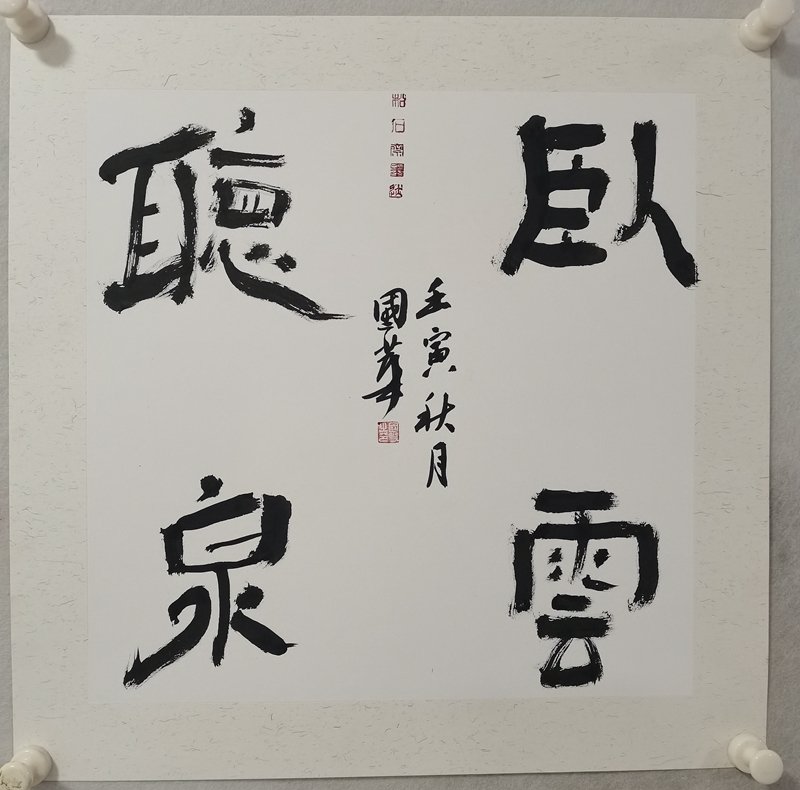 臥雲
聽泉
壬寅秋月
國華